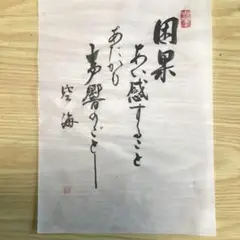 因果
あい感ずること
あたかも
声響のごとし
空海